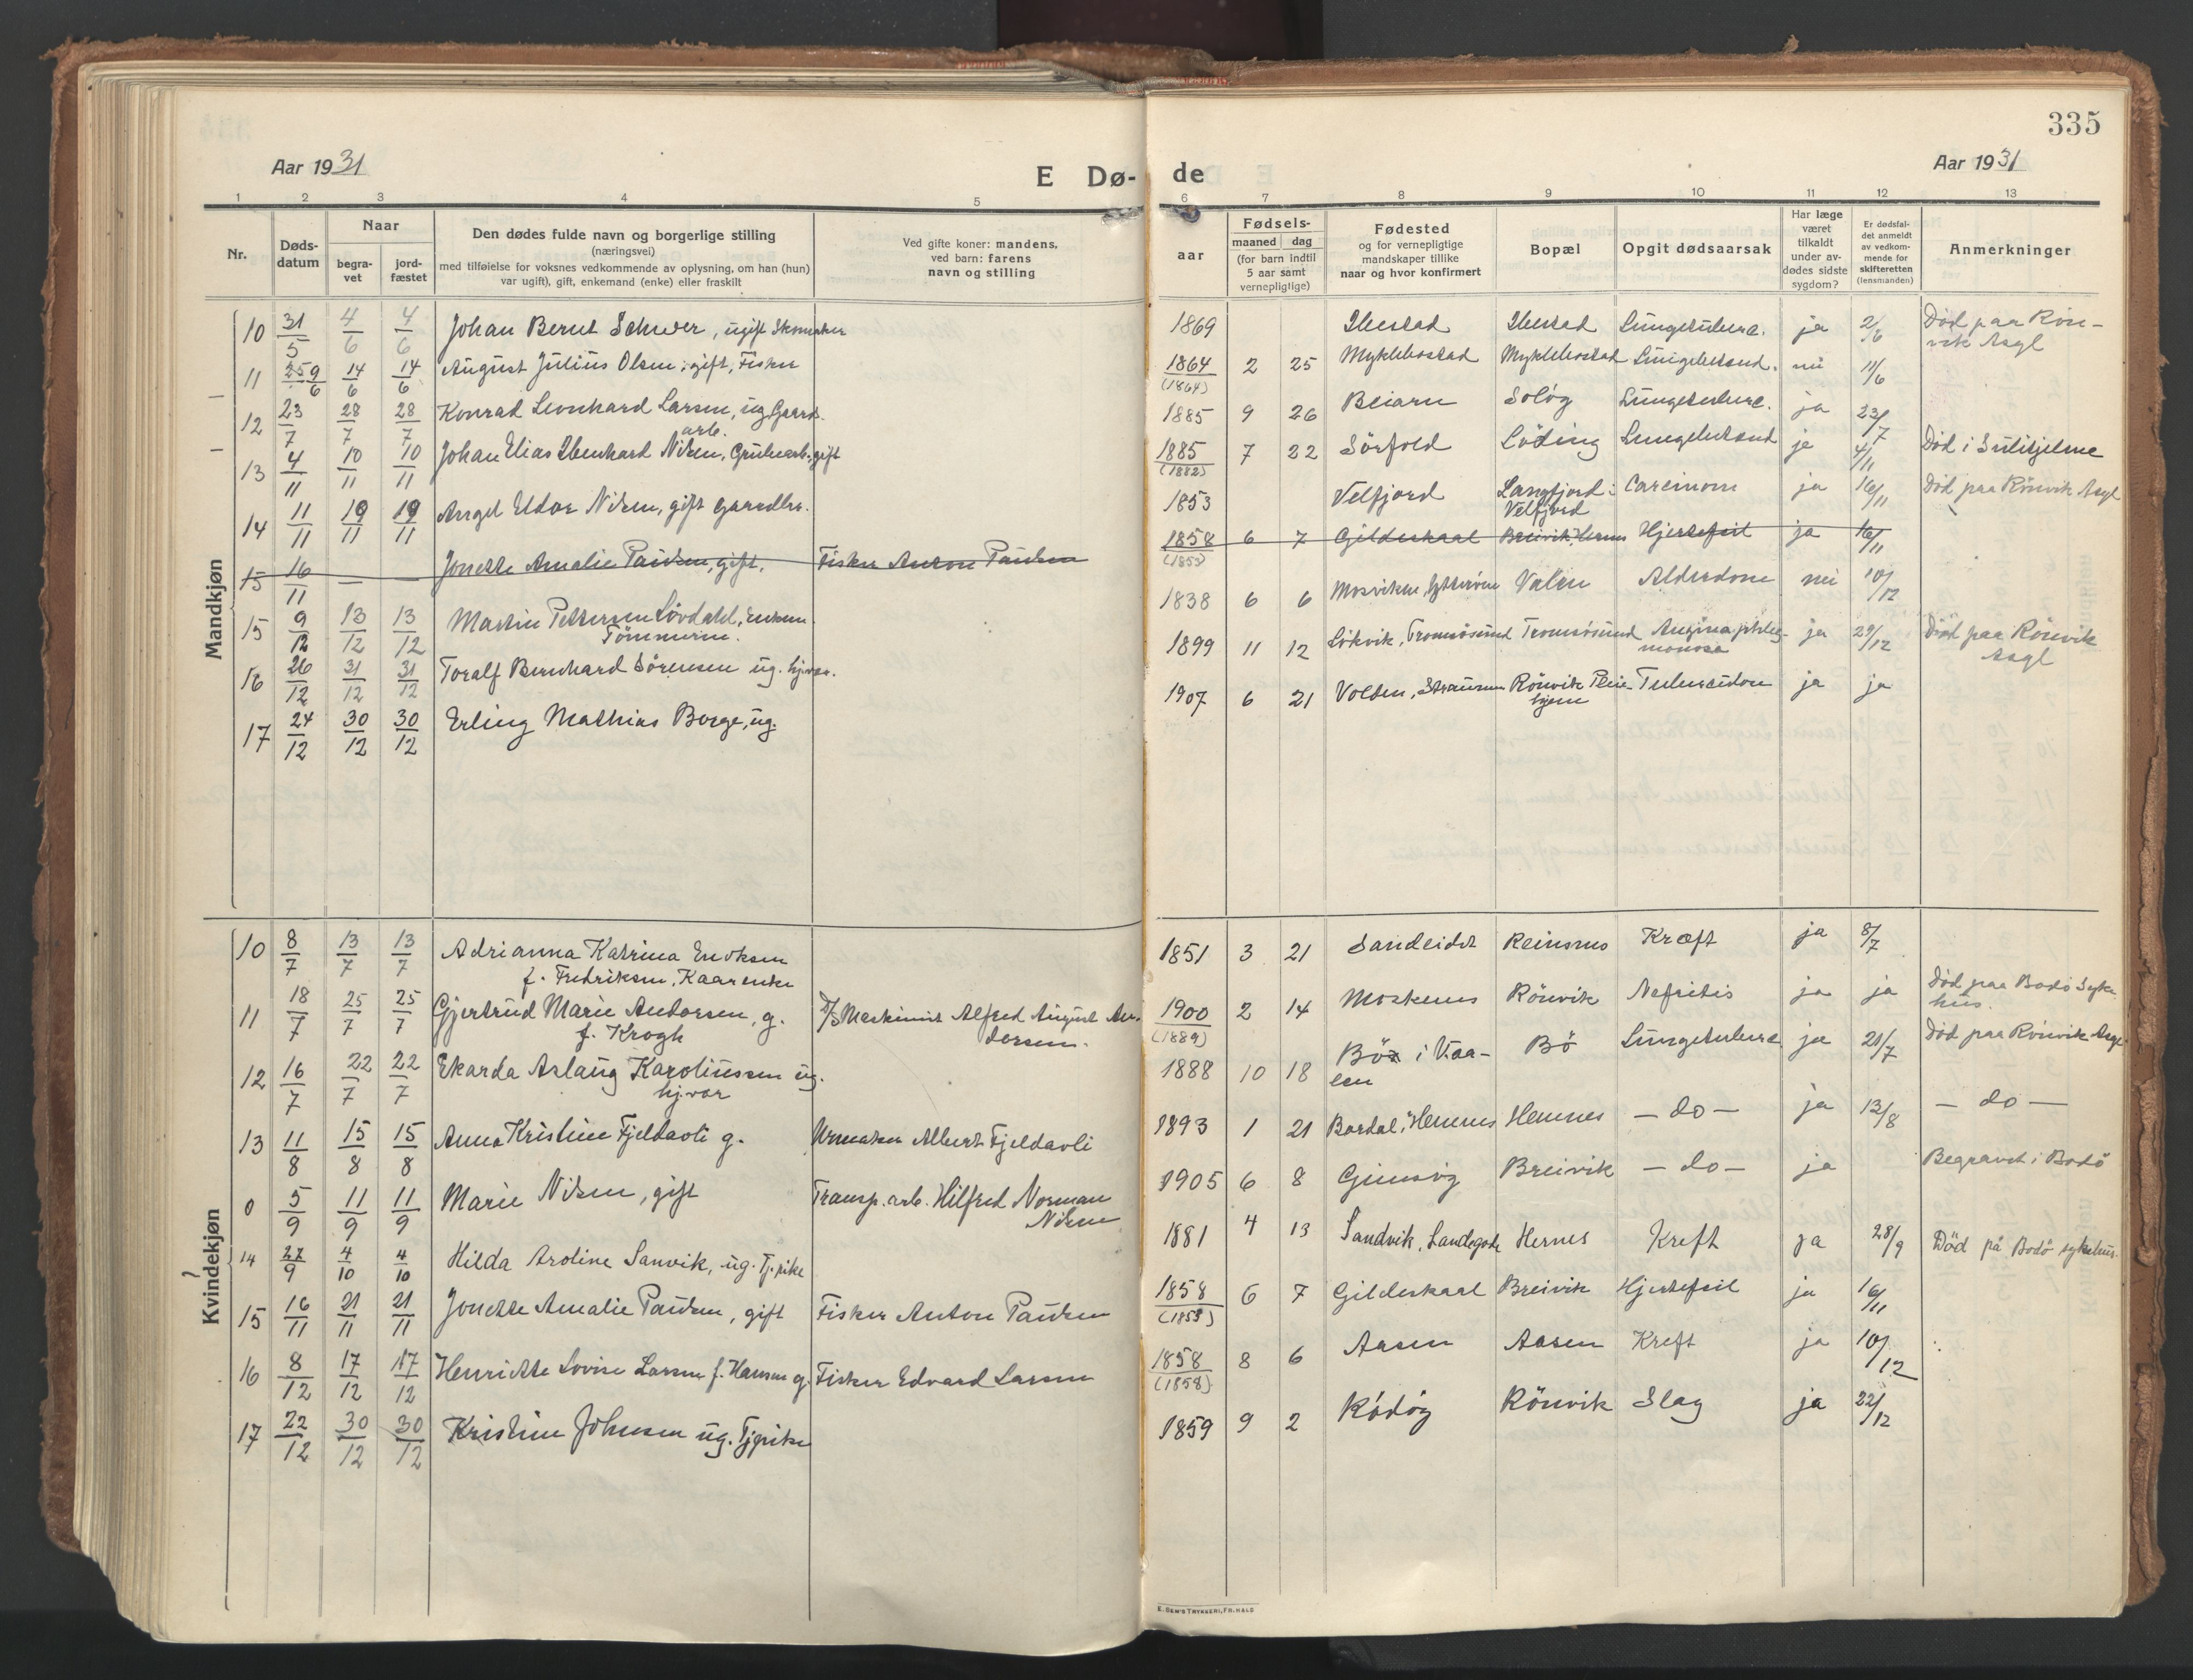 335
Aar 1931
E Dø- de
Aar 1931
1 2 3 4 5 6 7 8 9 10 11 12 13
Nr.
Døds-
datum
Naar
begra-
vet
jord-
fæstet
Den dødes fulde navn og borgerlige stilling
(næringsvei)
med tilføielse for voksnes vedkommende av oplysning, om han (hun)
var ugift), gift, enkemand (enke) eller fraskilt
Ved gifte koner: mandens,
ved barn: farens
navn og stilling
aar
Fødsels-
maaned dag
(for barn indtil
5 aar samt
vernepligtige)
Fødested
og for vernepligtige
mandskaper tillike
naar og hvor konfirmert
Bopæl
Opgit dødsaarsak
Har læge
været
tilkaldt
under av-
dødes sidste
sygdom?
Er dødsfal-
det anmeldt
av vedkom-
mende for
skifteretten
(lensmanden)
Anmerkninger
Mandkjøn
10 31/5 4/6 4/6 Johan Bernt , ugift Skomaker 1869 Ibestad Ibestad Lungetuberc. ja 2/6 Død paa Rön-
vik Asyl
11 9/6 14/6 14/6 August Julius Olsen, gift, Fisker 1864 2 25 Myklebostad Myklebostad Lungebetænd. nei 11/6
(1864)
12 23/7 28/7 28/7 Konrad Leonhard Larsen, ug. Gaards.
arb. 1885 9 26 Beiarn Soløy Lungetuberc. ja 23/7
13 4/11 10/11 10/11 Johan Elias Ibenhard Nilsen, Grubearb. gift 1885 7 22 Sörfold Löding Lungebetænd ja 4/11 Død i Sulitjelma
(1882)
14 11/11 19/11 19/11 Angel Eldor Nilsen, gift gaardbr. 1853 Velfjord Langfjord i Carcinom ja 16/11 Død paa Rönvik Asyl
Velfjord
15 16/11 — — Jonette Amalie Paulsen, gift. Fisker Anton Paulsen 1858 6 7 Gildeskaal Breivik, Hernes Hjertefeil ja 16/11
(1855)
15 9/12 13/12 13/12 Martin Pettersen Lövdahl, Enkem.
Tömmerm. 1838 6 6 Mosviken, Ytterøen Valen Alderdom nei 10/12
16 26/12 31/12 31/12 Toralf Bernhard Sörensen ug. hj.vær. 1899 11 12 Lökvik, Tromsösund Tromsösund Angina phleg-
monosa ja 29/12 Död paa Rönvik
Asyl
17 24/12 30/12 30/12 Erling Mathias Borge, ug. 1907 6 21 Volden, Straumen Rönvik Pleie-
hjem Tuberculose ja ja
Kvindekjøn
10 8/7 13/7 13/7 Adrianna Katrina Enoksen
f. Fredriksen, Kaarenke 1851 3 21 Sandeidet Reinsnes Kræft ja 8/7
11 18/7 25/7 25/7 Gjertrud Marie Andorsen, g.
f. Krogh D/S Maskinist Alfred August An-
dorsen. 1900 2 14 Moskenes Rönvik Nefritis ja ja Död paa Bodö Syke
hus.
(1889)
12 16/7 22/7 22/7 Ekarda Aslaug Karoliussen ug.
hj.vær 1888 10 18 Bö i Vaa-
len Bö Lungetuberc ja 21/7 Död paa Rönvik Asyl
13 11/8 15/8 15/8 Anna Kristine Fjeldavli g. Urmaker Albert Fjeldavli 1893 1 21 Bardal, Hemnes Hemnes — do — ja 12/8 — do —
0 5/9 11/9 11/9 Marie Nilsen, gift Transp. arb. Hilfred Norman
Nilsen 1905 6 8 Gimsöy Breivik — do — ja Begravet i Bodö
14 27/9 4/10 4/10 Hilda Aroline Sanvik, ug. Tj.pike 1881 4 13 Sandvik, Landegode Hernes Kreft ja 28/9 Död på Bodö sykehus.
15 16/11 21/11 21/11 Jonette Amalie Paulsen, gift Fisker Anton Paulsen 1858 6 7 Gildeskaal Breivik Hjertefeil ja 16/11
(1858)
16 8/12 17/12 17/12 Henriette Lovise Larsen f. Hansen g. Fisker Edvard Larsen 1858 8 6 Aasen Aasen Kreft ja 10/12
(1858)
17 22/12 30/12 30/12 Kristine Johnsen ug. Tjpike 1859 9 2 Rödöy Rönvik Slag ja 22/12
E. SEM'S TRYKKERI, FR.HALD